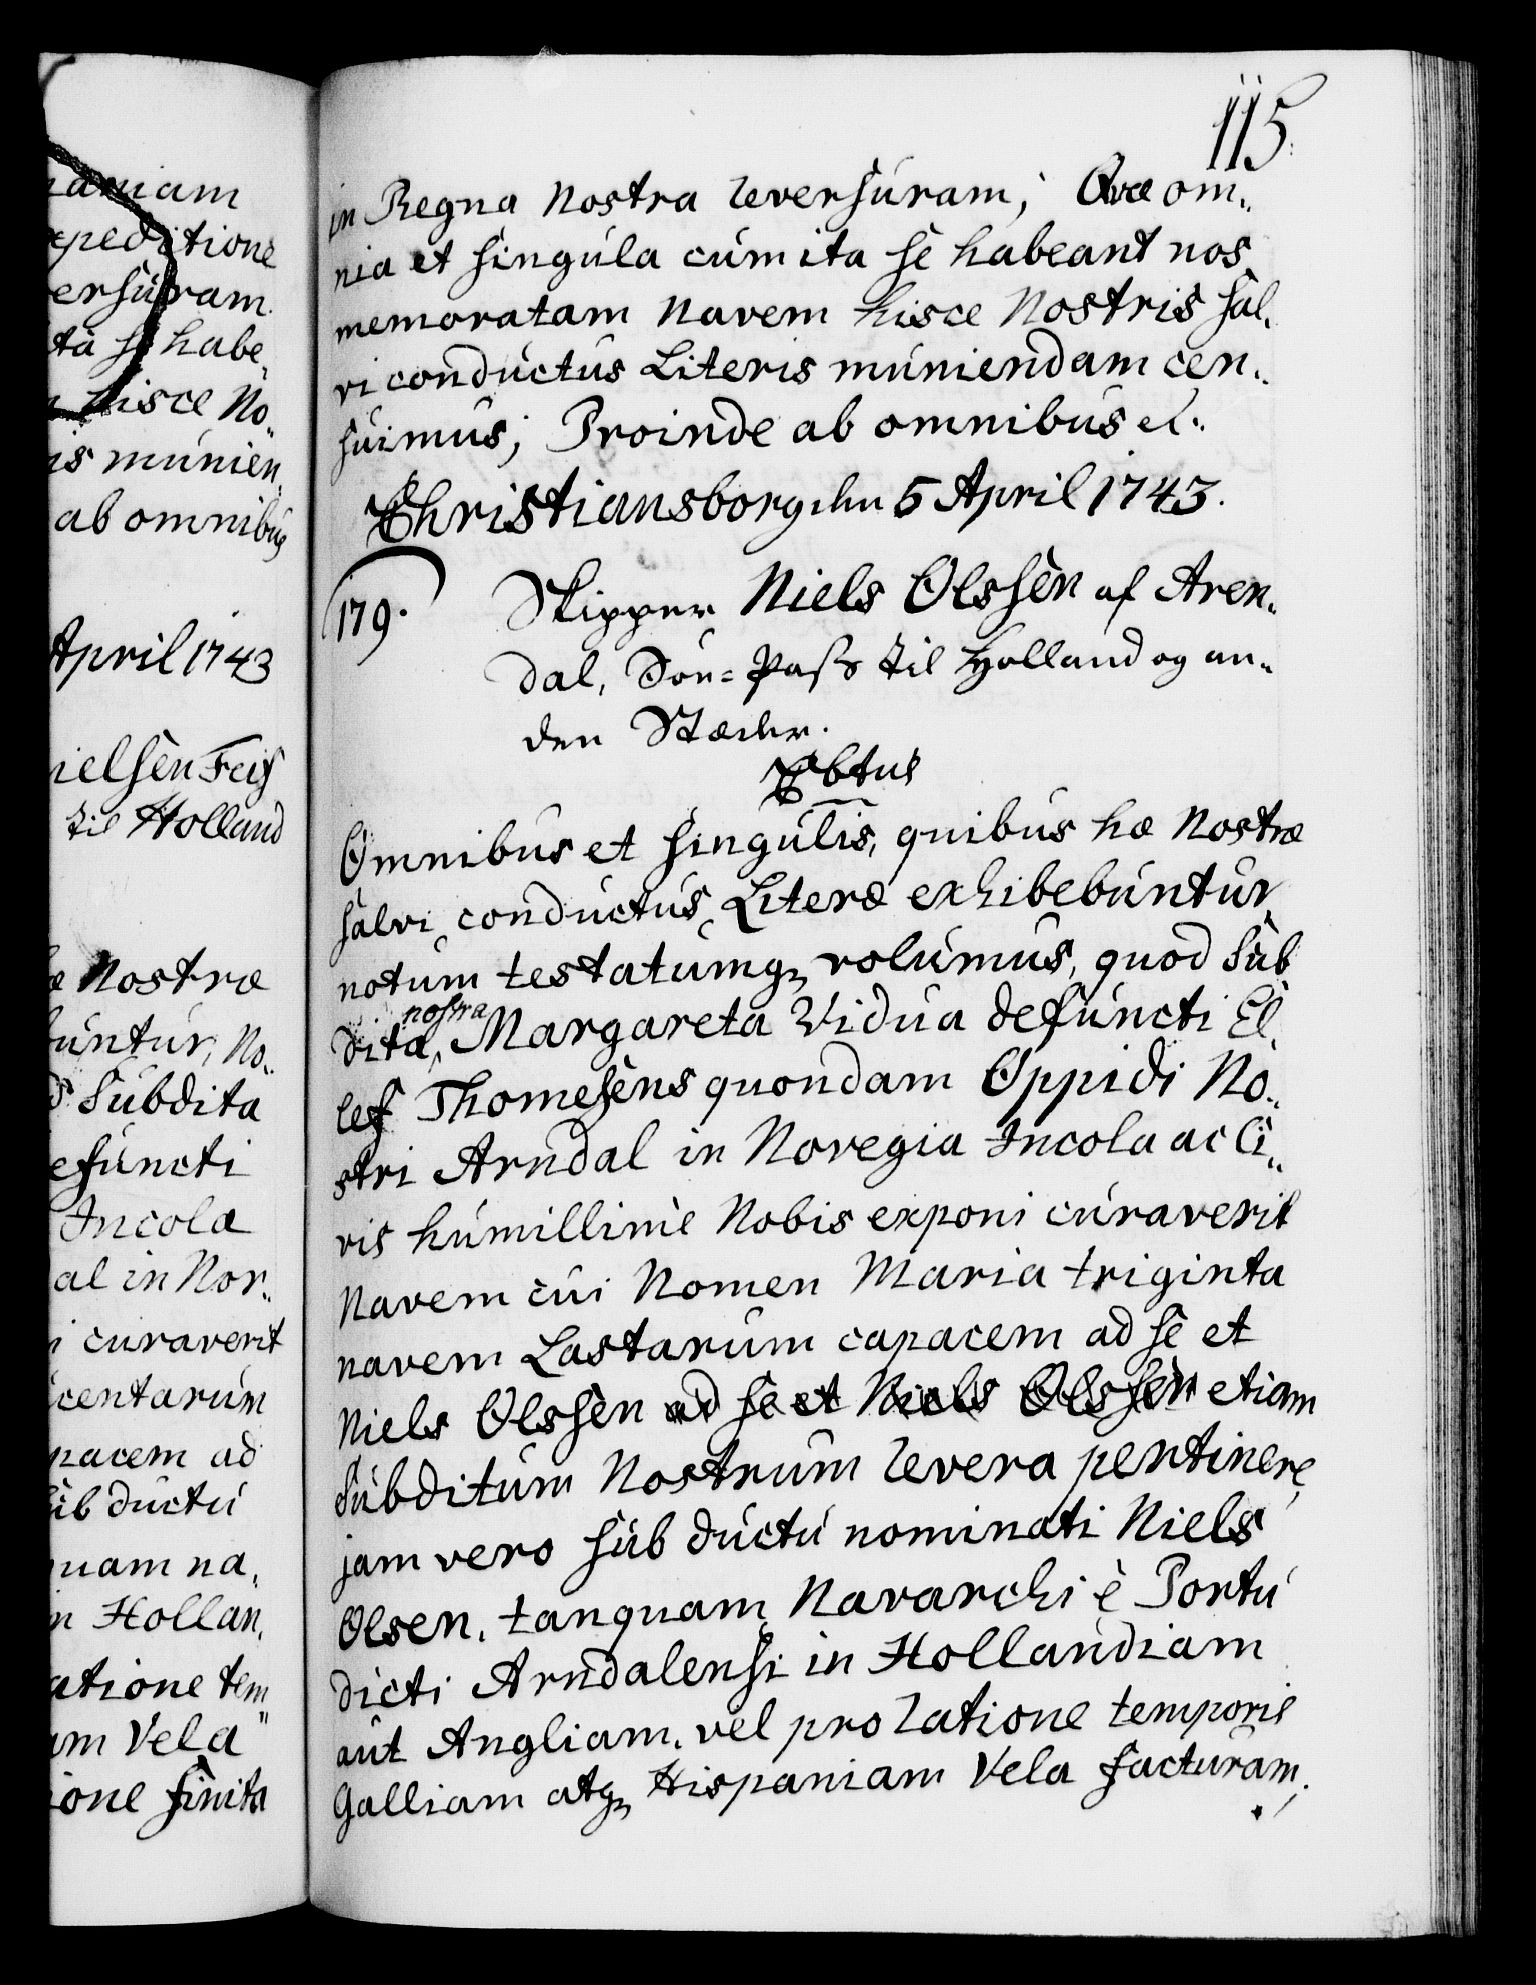 naniam
xpeditione
ersuram
ta se habe„
hisce No„
is munien„
ab omnibus
April 1743
ielsen Feis
til Holland
æ Nostræ
buntur, No„
Subdita
efuncti
Incola
al in Nor„
i curaverit
centarum
pacem ad
sub ductu
quam na„
in Hollan„
atione tem„
um Vela
ione finita
115.
in Regna Nostra reversuram; Qvæ om„
nia et singula cum ita se habeant nos
memoratam Navem hisce Nostris sal„
vi conductus Literis muniendam cen„
suimus; Proinde ab omnibus et.
Christiansborg den 5 April 1743.
179.
Skipper Niels Olssen af Aren„
dal, Söe-Pass til Holland og an„
dre Stæder.
Omnibus et singulis, quibus hæ Nostræ
salvi conductus Literæ exhibebuntur
notum testatumq volumus, quod Sub
nostra
dita, Margareta Vidua defuncti El„
lef Thomesens quondam Oppidi No„
stri Arndal in Norvegia Incola ac Ci„
vis humillime Nobis exponi curaverit
Navem cui Nomen Maria triginta
navem Lastarum capacem ad se et
Niels Olssen ad se et Niels Olssen etiam
Subditum Nostrum revera pertinere
jam vero sub ductu nominati Niels
Olsen, tanquam Navarchi è Portu
dicti Arndalensi in Hollandiam
aut Angliam, vel pro ratione temporis
Galliam atq Hispaniam Vela facturam,